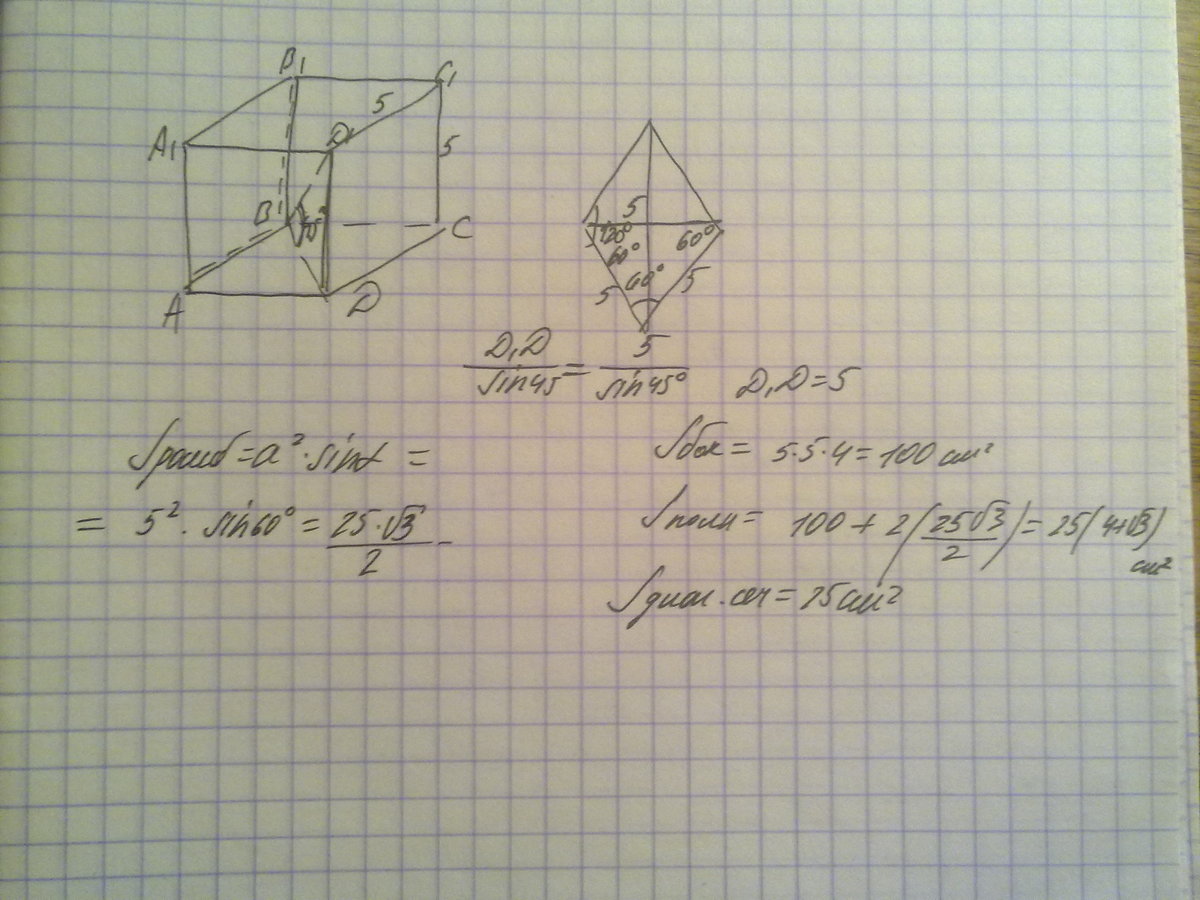 B₁
C₁
5
A₁
D₁
5
B
45°
C
A
D
5
120°
60°
60°
60°
5
5
D₁D/sin45 = 5/sin45° D₁D=5
Sромб=a²·sinα =
= 5²·sin60° = 25·√3/2
Sбок = 5·5·4=100 см²
Sполн = 100 + 2(25√3/2) = 25(4+√3) см²
Sдиаг.сеч = 25см²